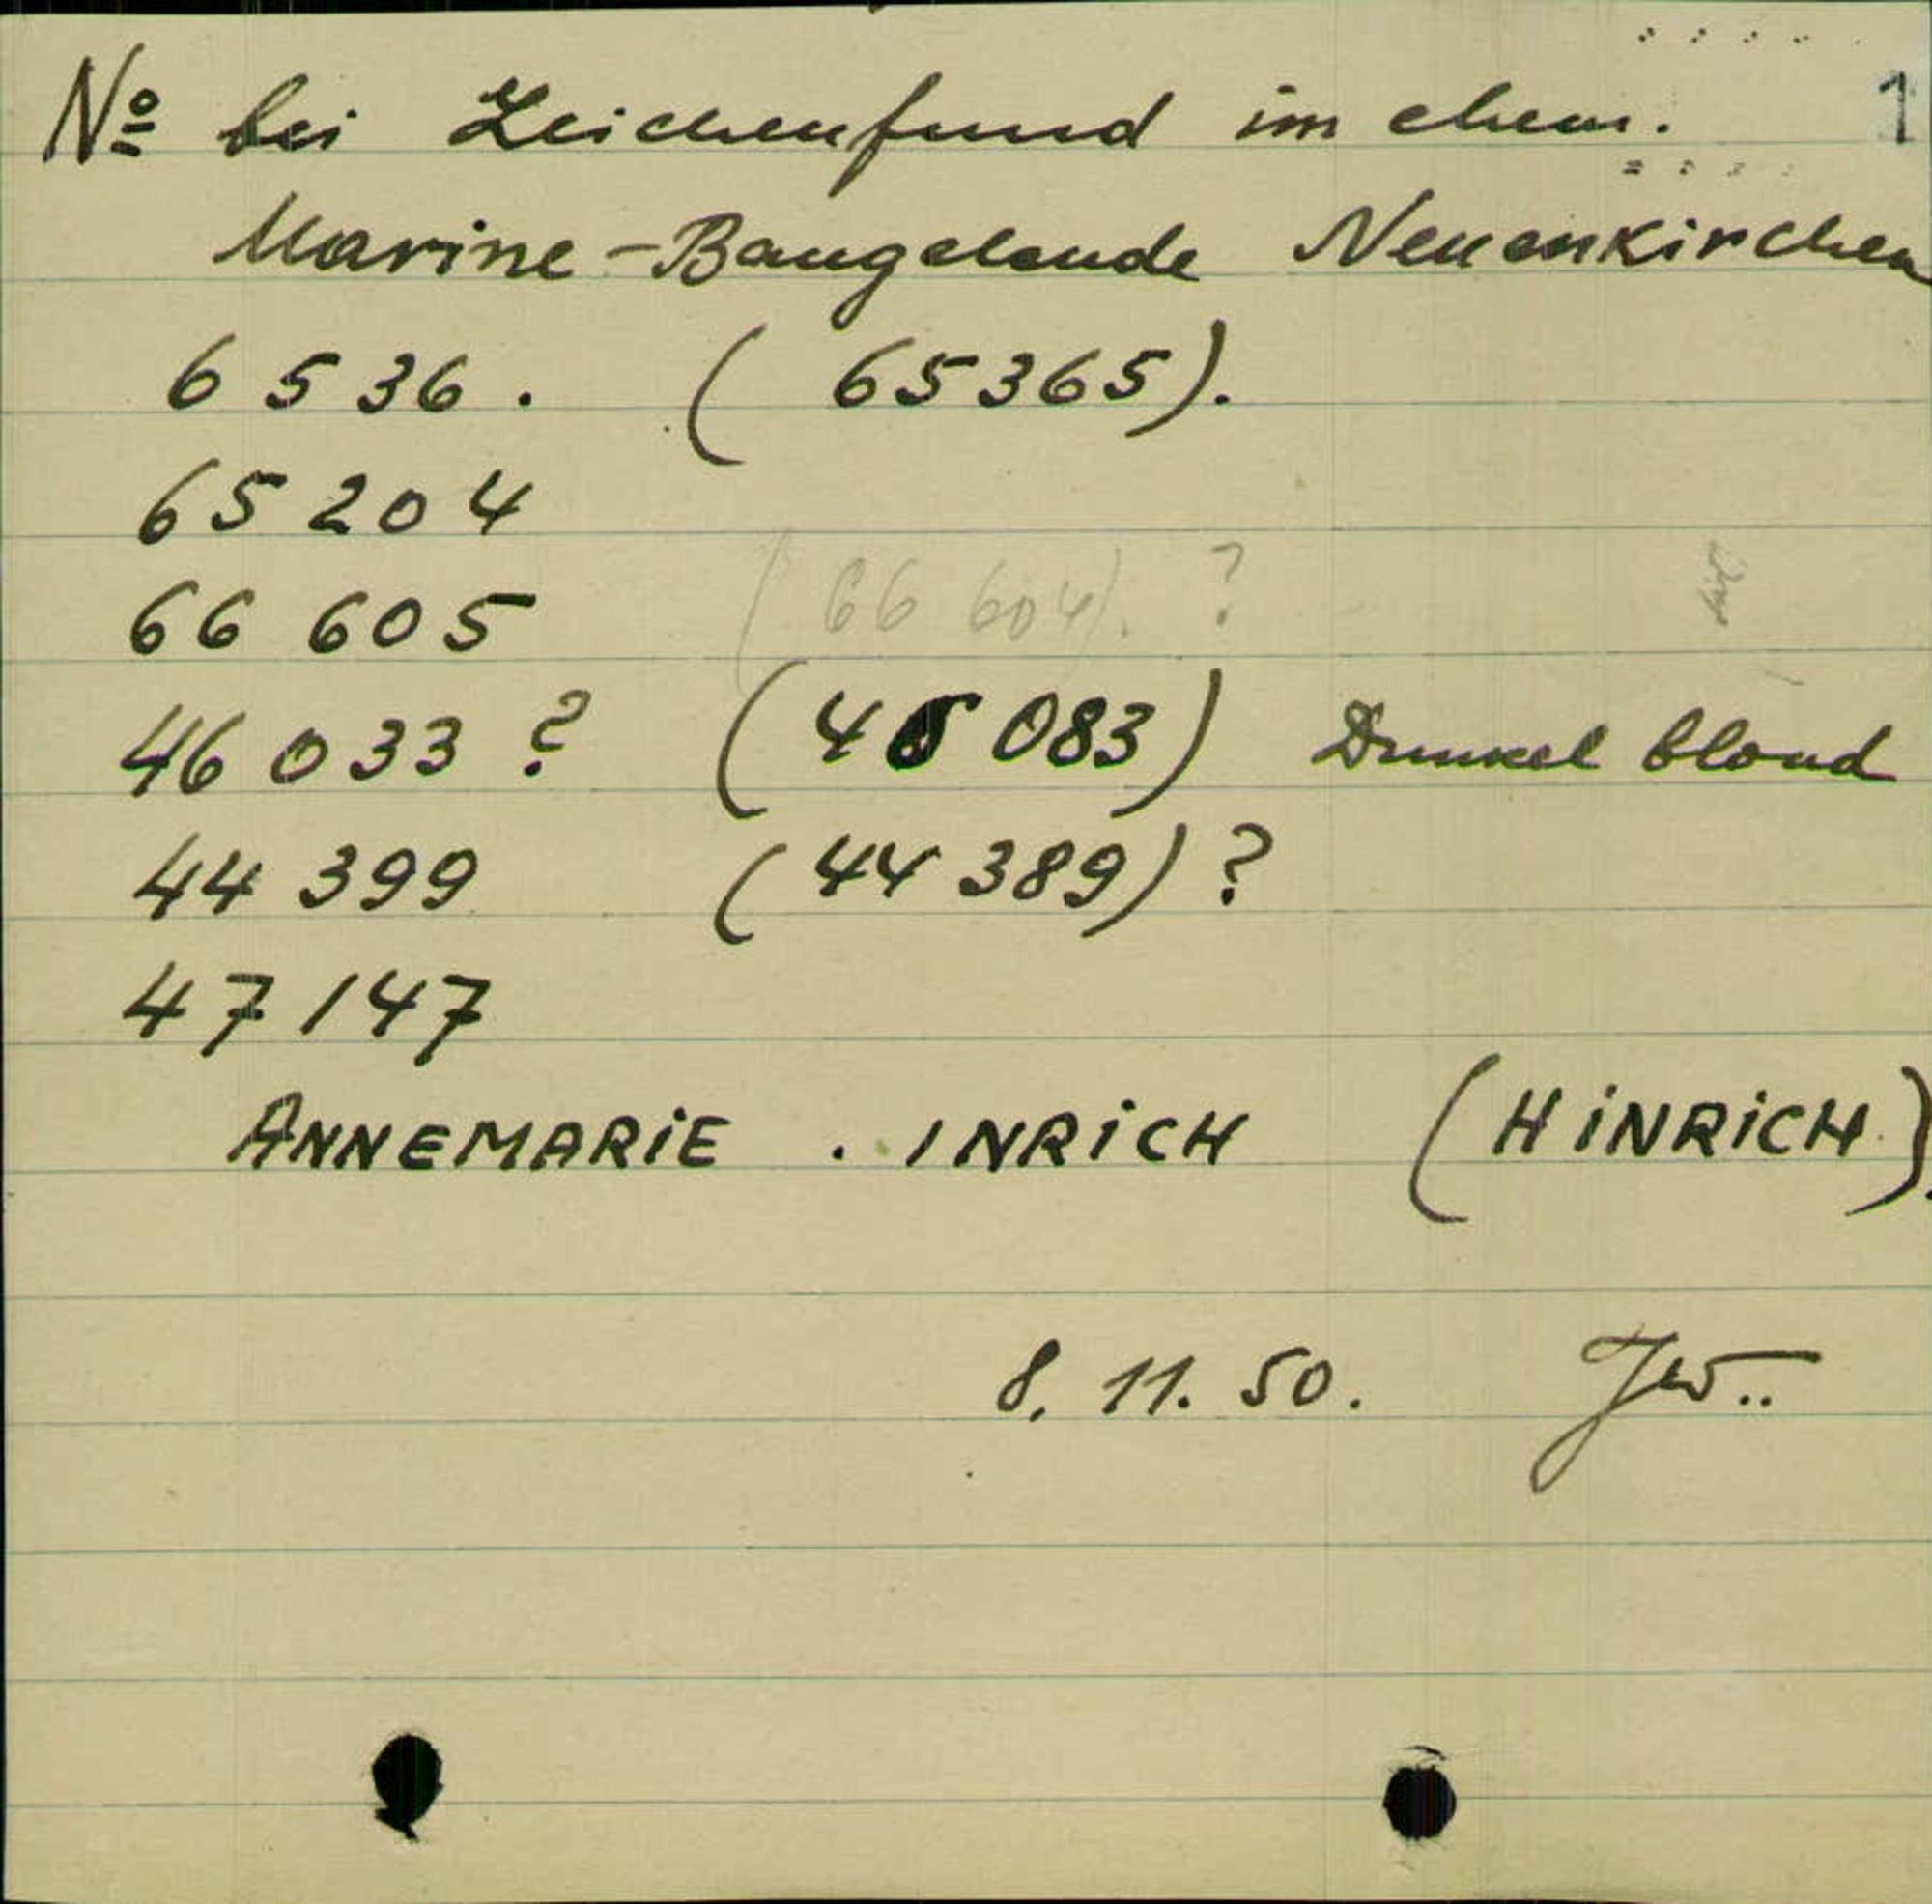 Nº bei Leichenfund im ehem. 1
Marine-Baugelände Neuenkirchen
6 536. (65365).
65 204
66 605 (66 604). ?
46 033 ? (46 083) Dunkel blond
44 399 (44 389) ?
47 147
ANNEMARIE . INRICH (HINRICH).
8. 11. 50.